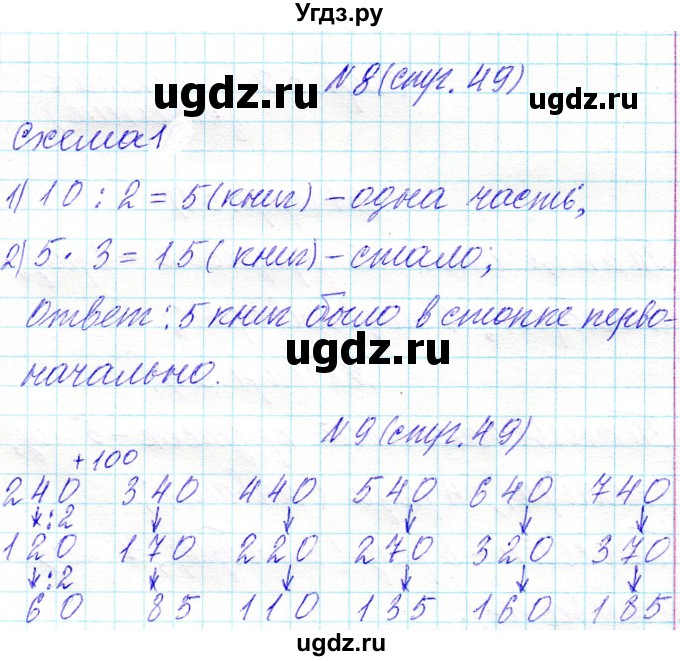 Угдз.ру
№8(стр. 49)
ugdz.ru
ugdz.ru
схема1
1) 10 : 2 = 5(книг) - одна часть;
2) 5 · 3 = 15( книг) - стало;
Ответ: 5 книг было в стопке перво-
ugdz.ru
начально.
№9(стр. 49)
+100
240 340 440 540 640 740
:2
120 170 220 270 320 370
:2
60 85 110 135 160 185
ugdz.ru
ugdz.ru